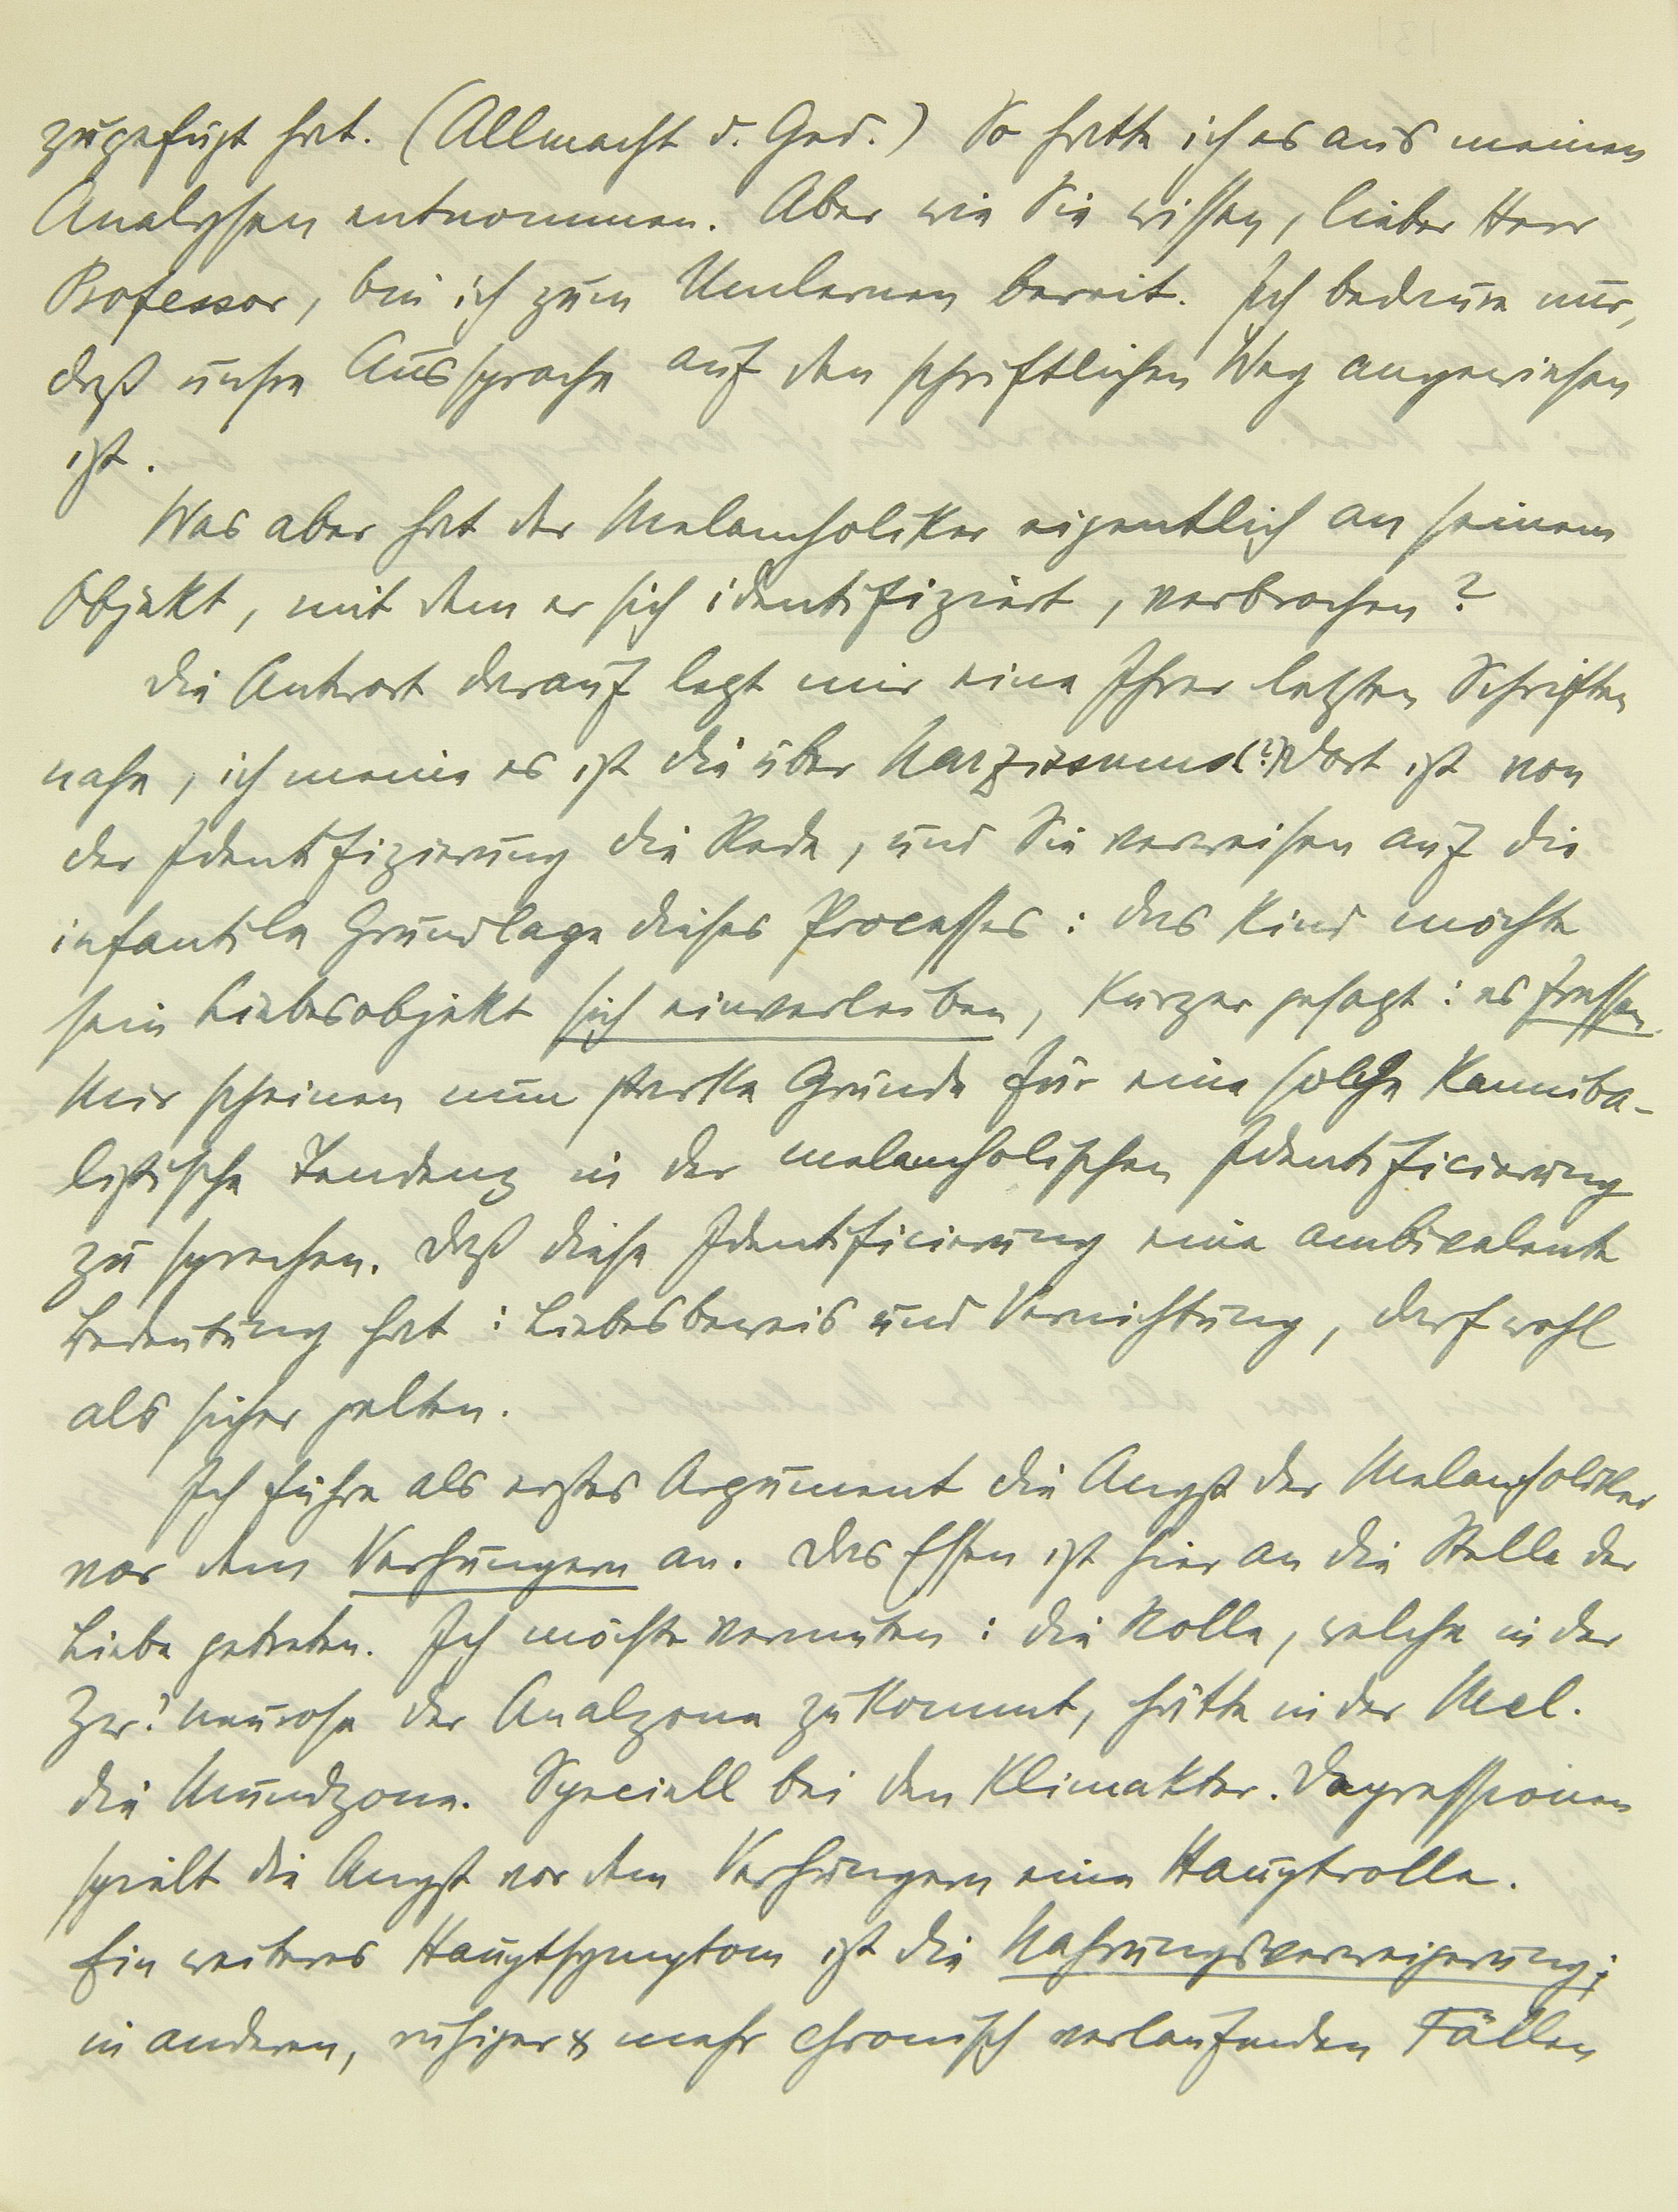 zugefügt hat. (Allmacht d. Ged.) So hatte ich es aus meinen
Analysen entnommen. Aber wie Sie wissen, lieber Herr
Professor, bin ich zum Umlernen bereit. Ich bedaure nur,
daß unsre Aussprache auf den schriftlichen Weg angewiesen
ist.
Was aber hat der Melancholiker eigentlich an seinem
Objekt, mit dem er sich identifiziert, verbrochen?
Die Antwort darauf legt mir eine Ihrer letzten Schriften
nahe, ich meine es ist die über Narzissmus(?) Dort ist von
der Identifizierung die Rede, und Sie verweisen auf die
infantile Grundlage dieses Processes: das Kind möchte
sein Liebesobjekt sich einverleiben, kurzer gesagt: es fressen.
Mir scheinen nun starke Gründe für eine solche kanniba-
listische Tendenz in der melancholischen Identificierung
zu sprechen. Daß diese Identificierung eine ambivalente
Bedeutung hat: Liebesbeweis und Vernichtung, darf wohl
als sicher gelten.
Ich führe als erstes Argument die Angst der Melancholiker
vor dem Verhungern an. Das Essen ist hier an die Stelle der
Liebe getreten. Ich möchte vermuten: die Rolle, welche in der
Zw.neurose der Analzone zukommt, hätte in der Mel.
die Mundzone. Speciell bei den Klimakter. Depressionen
spielt die Angst vor dem Verhungern eine Hauptrolle.
Ein weiteres Hauptsymptom ist die Nahrungsverweigerung;
in anderen, ruhiger & mehr chronisch verlaufenden Fällen